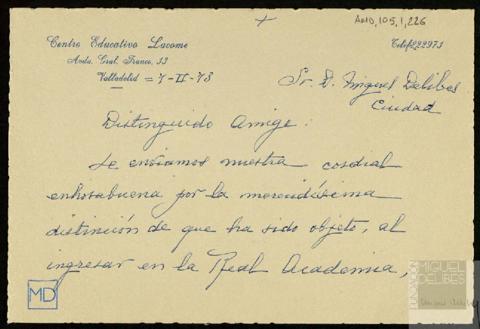 AMD,105,1,226
Centro Educativo Lacome
Avda. Gral. Franco, 33
Teléf. 222973
Valladolid = 7-II-75
Sr. D. Miguel Delibes
Ciudad
Distinguido Amigo:
Le enviamos nuestra cordial
enhorabuena por la merecidísima
distinción de que ha sido objeto, al
ingresar en la Real Academia,
MD
FUNDACIÓN
MIGUEL
DELIBES